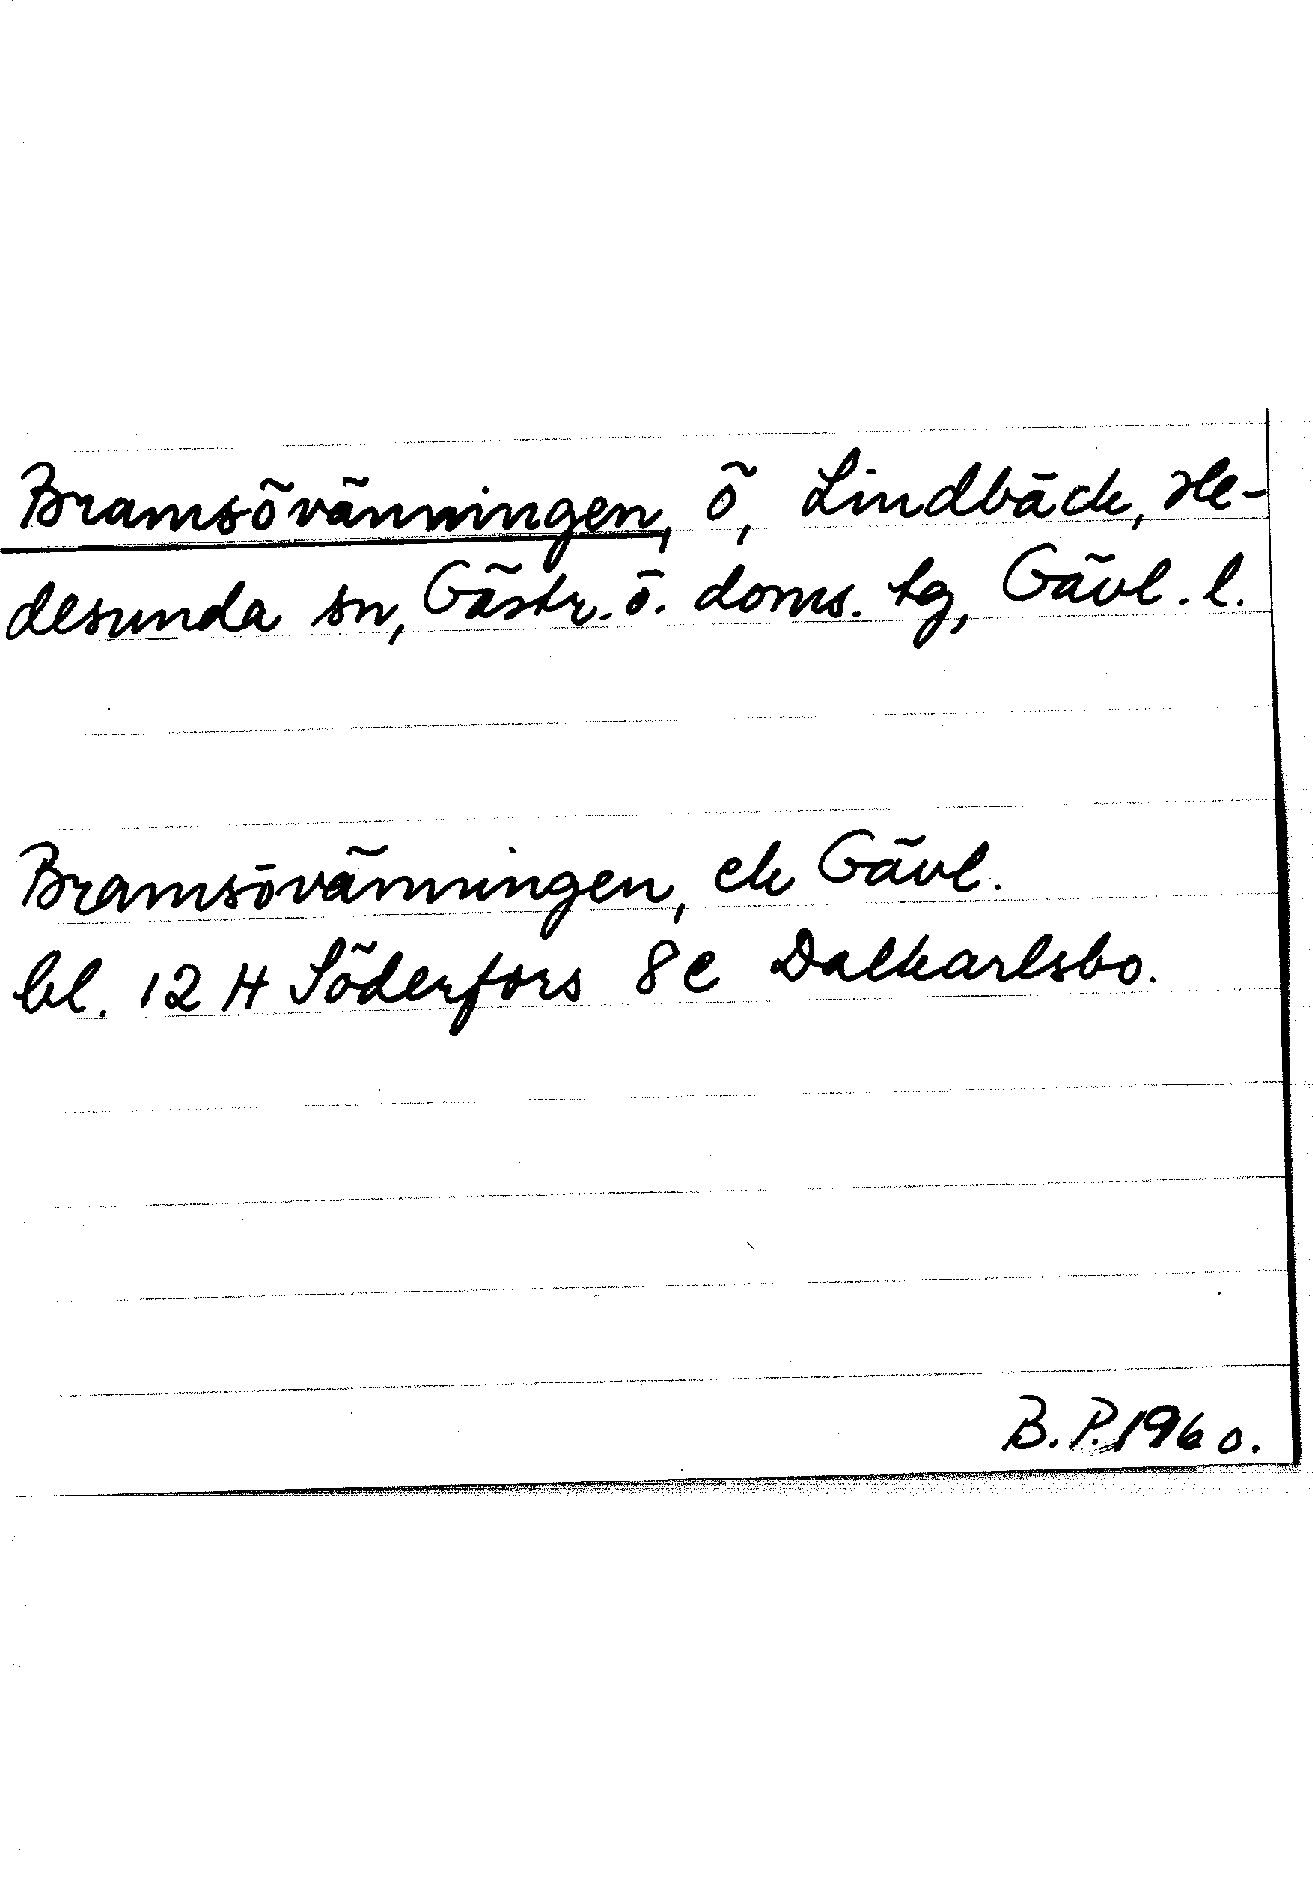 Bramsövänningen, ö, Lindbäck, He-
desunda sn, Gästr. ö. doms. tg, Gävl. l.
Bramsövänningen, ek Gävl.
bl. 12 H Söderfors 8 e Dalkarlsbo.
B.P. 1960.